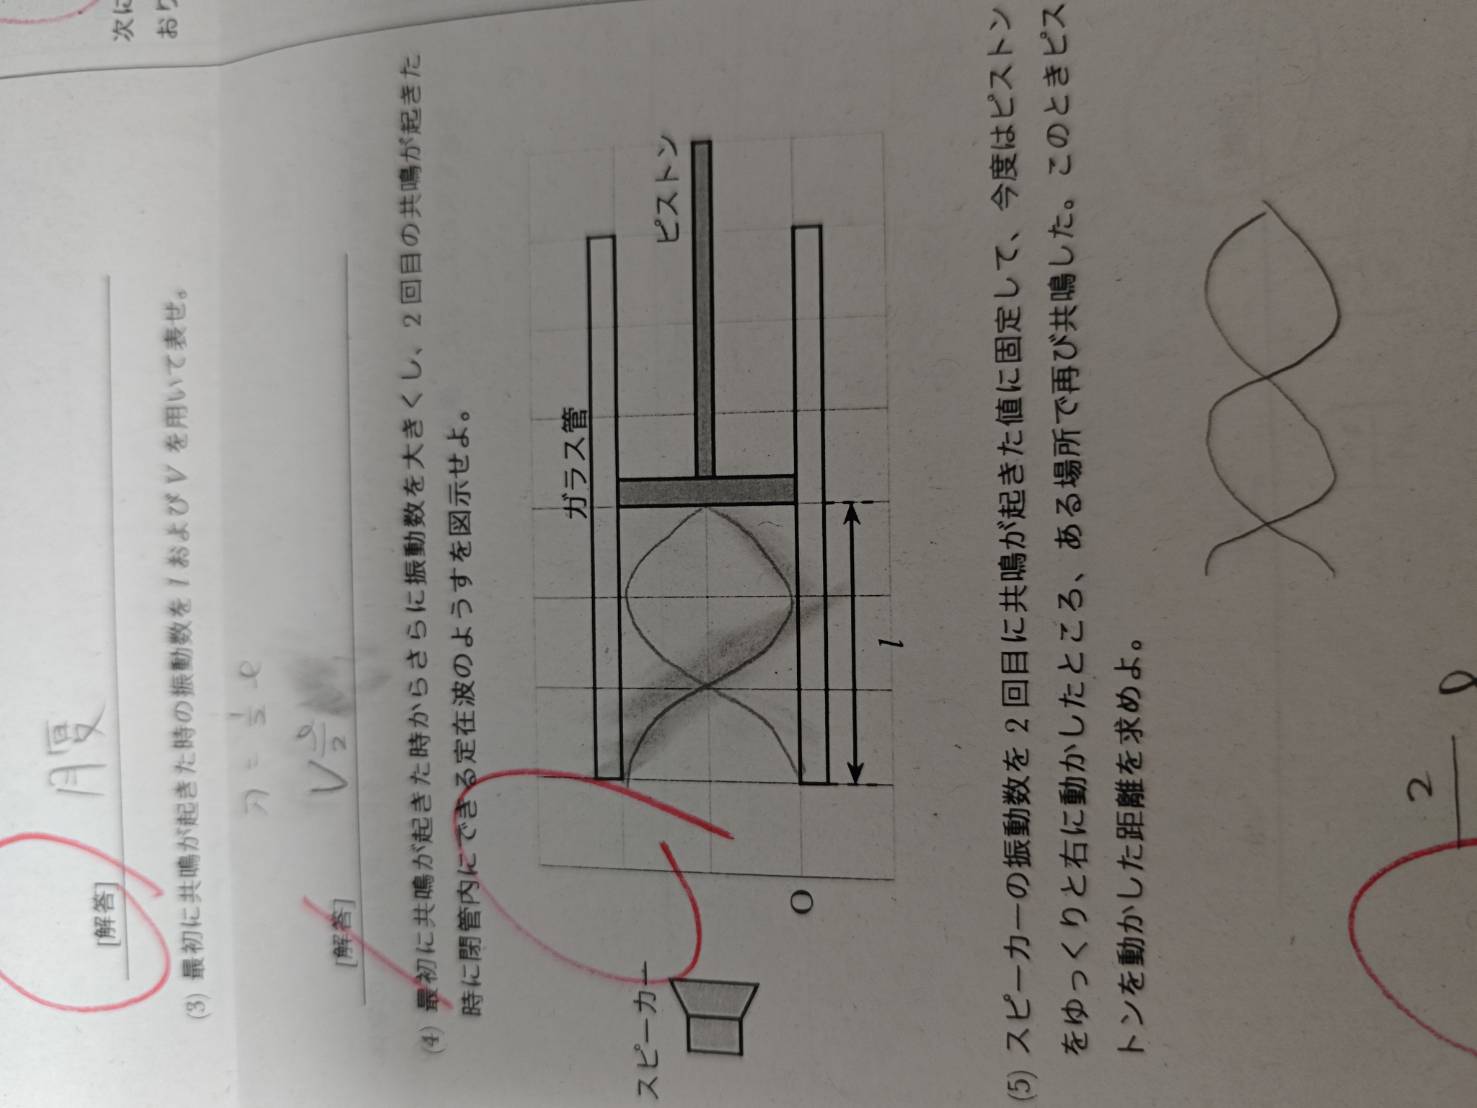 [解答] 腹
(3) 最初に共鳴が起きた時の振動数を l および V を用いて表せ。
λ = 1/2 ℓ
[解答] V ℓ/2
(4) 最初に共鳴が起きた時からさらに振動数を大きくし、2 回目の共鳴が起きた
時に閉管内にできる定在波のようすを図示せよ。
ガラス管
スピーカー
ピストン
O
l
(5) スピーカーの振動数を 2 回目に共鳴が起きた値に固定して、今度はピストン
をゆっくりと右に動かしたところ、ある場所で再び共鳴した。このときピス
トンを動かした距離を求めよ。
2
ℓ
次に
おり